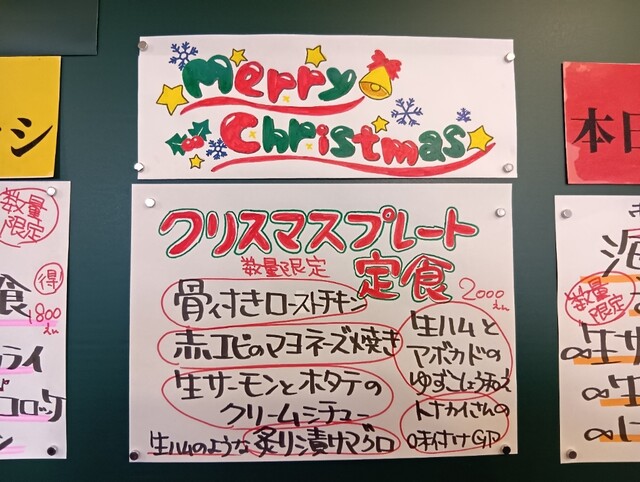 Merry
Christmas
クリスマスプレート
定食
数量限定
2000
えん
骨付きローストチキン
赤エビのマヨネーズ焼き
生サーモンとホタテの
クリームシチュー
生ハムのような炙り漬けマグロ
生ハムと
アボカドの
ゆずこしょう和え
トナカイさんの
味付け
シ
数量
限定
食
得!
1800
えん
ライ
コロッケ
ン
本日
海
数量
限定
生サ
生